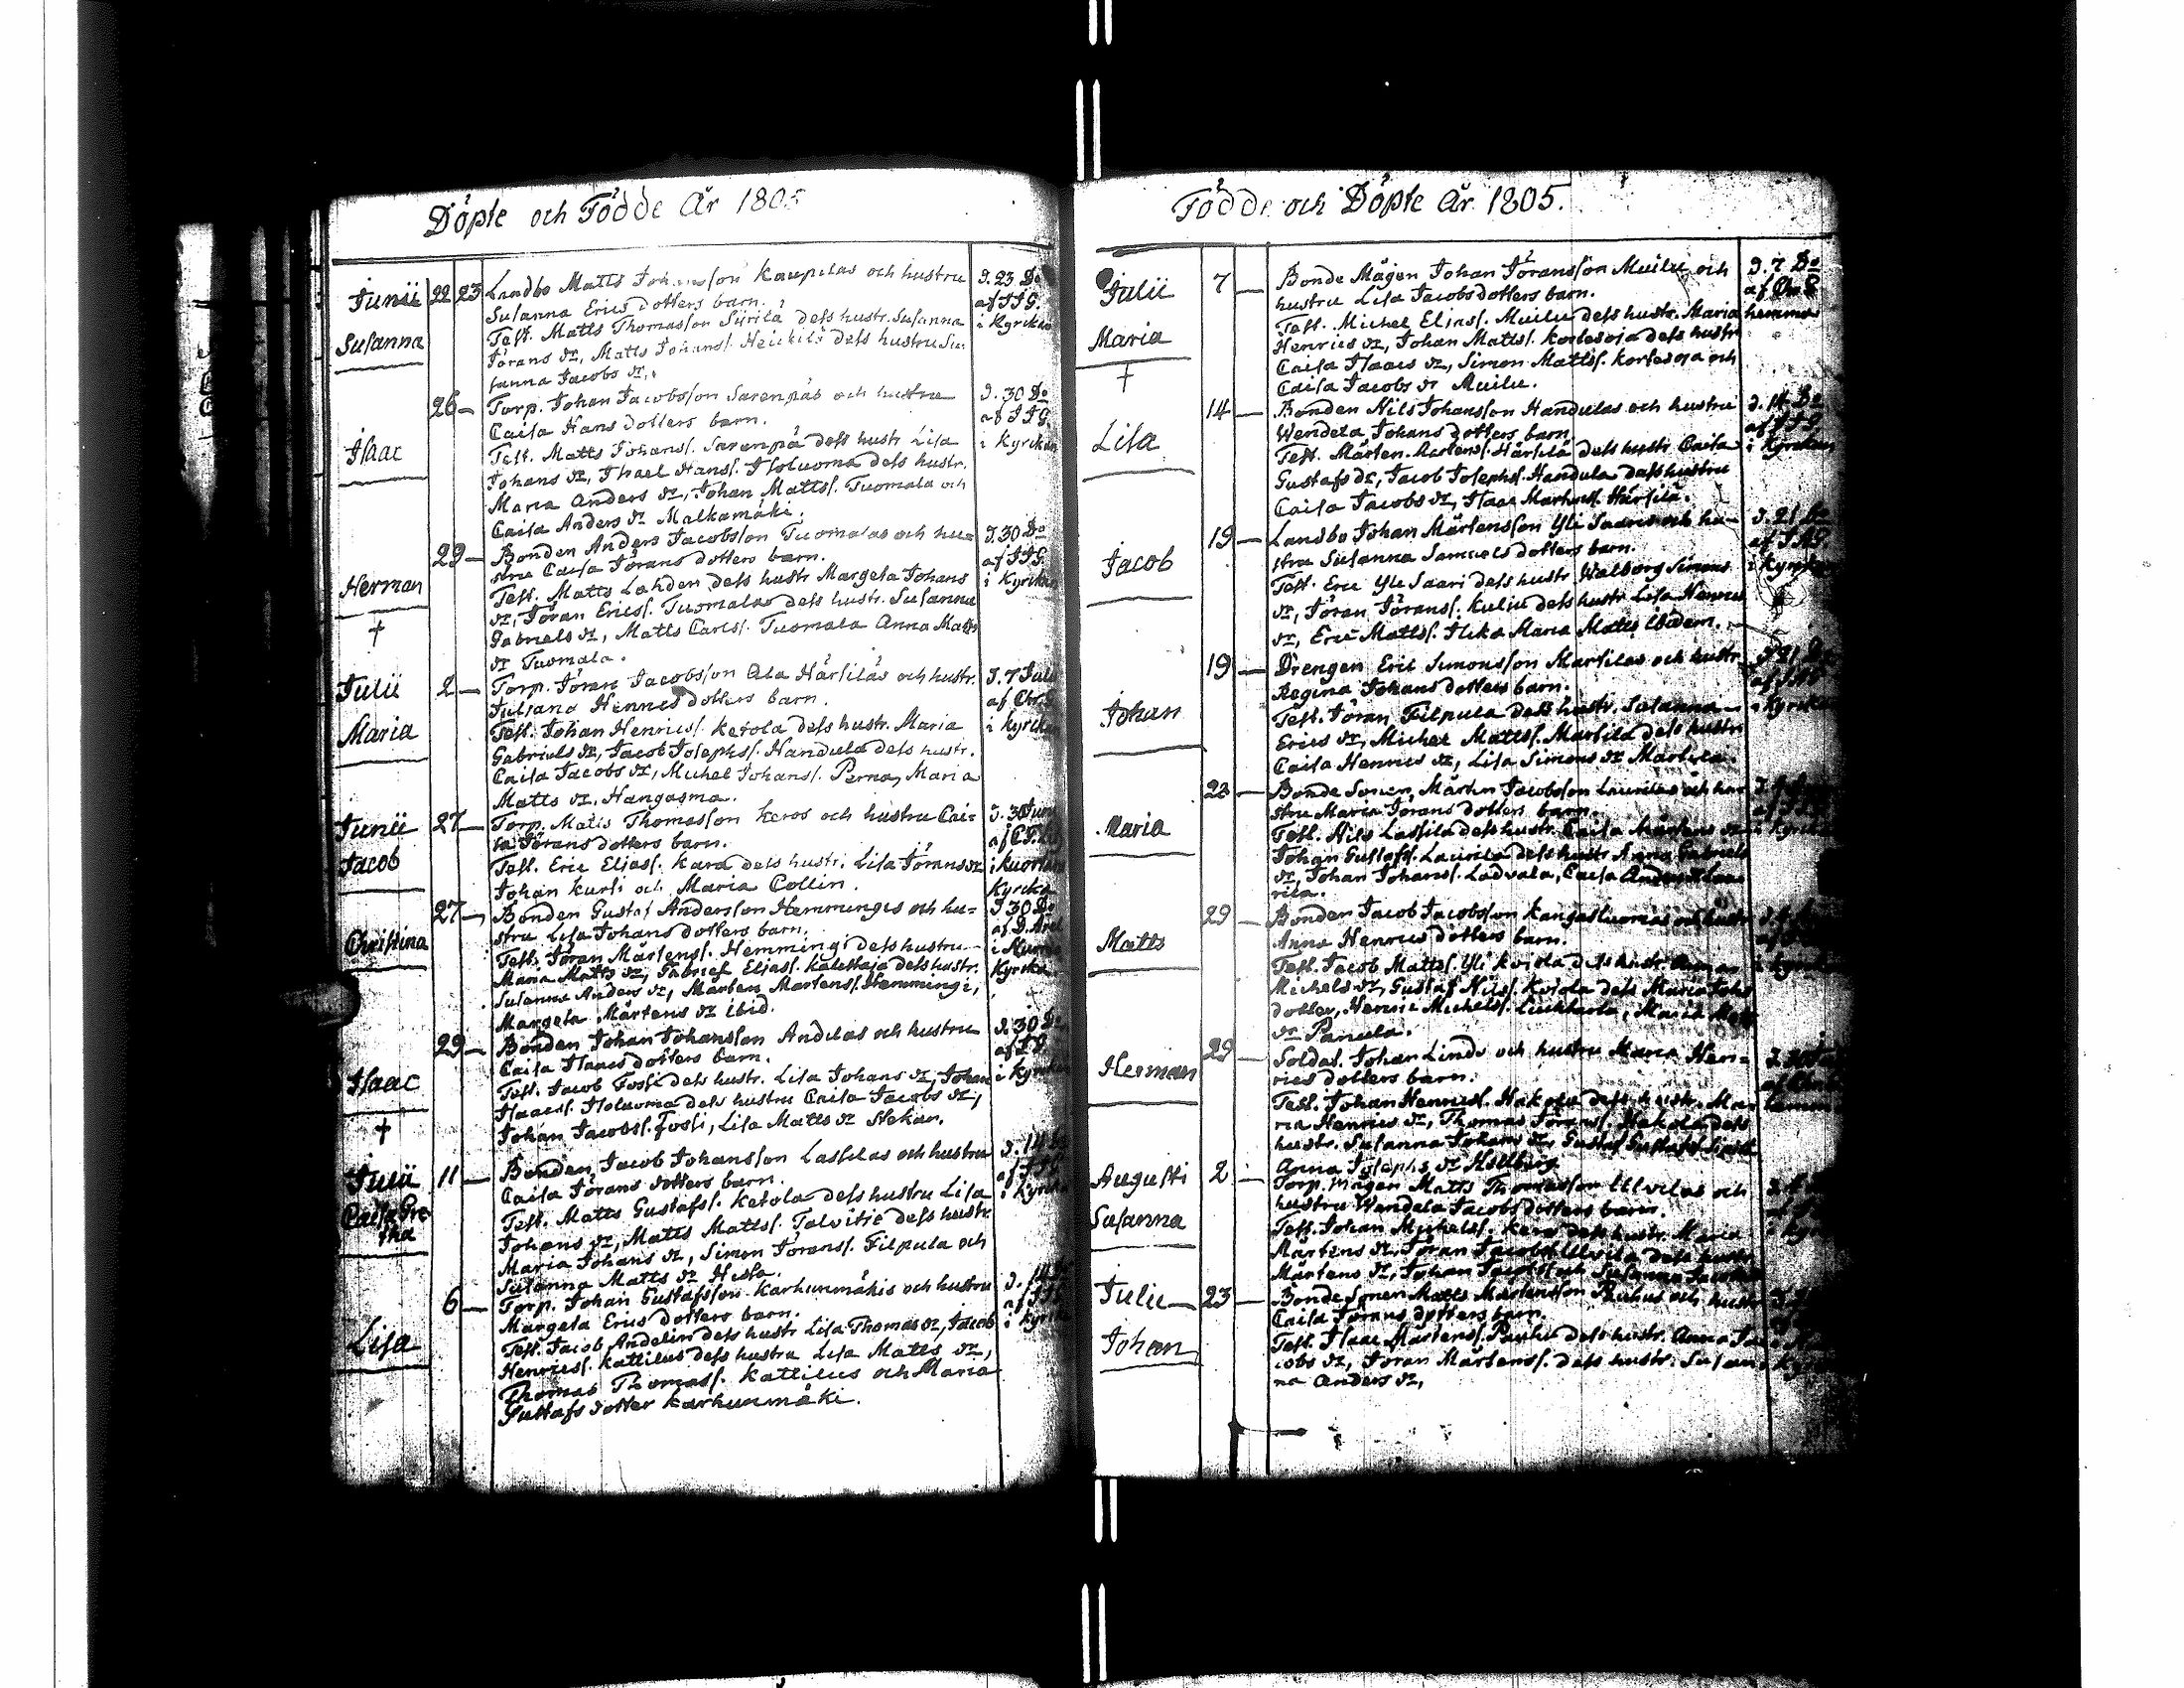 Döpte och Födde År 1805
Junii 22 23 Landbo Matts Johansson Kaupilas och hustru D. 23 Do
Susanna Erics dotters barn. af JJG.
Susanna Test. Matts Thomasson Siirilä dess hustr. Susanna i Kyrkan
Jörans dr, Matts Johanss. Heickilä dess hustru Su=
sanna Jacobs dr.
26 Torp. Johan Jacobsson Sarenpäs och hustru D. 30 Do
Caisa Hans dotters barn. af JJG.
Isaac Test. Matts Johanss. Sarenpä dess hustr Lisa i Kyrkan
Johans dr, Israel Hanss. Isoluoma dess hustr.
Maria Anders dr, Johan Mattss. Tuomala och
Caisa Anders dr Malkamäki.
29 Bonden Anders Jacobsson Tuomalas och hu= D. 30 Do
stru Caisa Jörans dotters barn. af JJG.
Herman Test. Matts Lahden dess hustr Margeta Johans i Kyrkan
dr, Jöran Ericss. Tuomalas dess hustr. Susanna
† Gabriels dr, Matts Carlss. Tuomala Anna Matts
dr Tuomala.
Julii 2 Torp. Jöran Jacobsson Ala Härsiläs och hustr. D. 7 Julii
Juliana Henrics dotters barn. af Chr.
Maria Test. Johan Henricss. Ketola dess hustr. Maria i Kyrkan
Gabriels dr, Jacob Josephss. Handula dess hustr.
Caisa Jacobs dr, Michel Johanss. Perna, Maria
Matts dr. Hangasma.
Junii 27 Torp. Matts Thomasson Keros och hustru Cai= D. 30 Jun
sa Jörans dotters barn.
Jacob Test. Eric Eliass. Kara dess hustr. Lisa Jörans dr
Johan Kurki och Maria Collin. Kyrka
27 Bonden Gustaf Andersson Hemminges och hu= D. 30 Do
stru Lisa Johans dotters barn.
Christina Test. Jöran Mårtenss. Hemmingi dess hustru
Maria Matts dr, Gabriel Eliass. Kalettaja dess hustr. Kyrka
Susanna Anders dr, Mårten Mårtenss. Hemmingi,
Margeta Mårtens dr ibid.
29 Bonden Johan Johansson Andilas och hustru D. 30 Do
Caisa Isaacs dotters barn.
Isaac Test. Jacob Fossi dess hustr. Lisa Johans dr, Johan i Kyrkan
Isaacss. Isoluoma dess hustru Caisa Jacobs dr,
† Johan Jacobss. Fossi, Lisa Matts dr Stekar.
Julii 11 Bonden Jacob Johansson Lassilas och hustru D. 14
Caisa Jörans dotters barn.
Caisa Gre= Test. Matts Gustafss. Ketola dess hustru Lisa i Kyrka
tha Johans dr, Matts Mattss. Talvitie dess hustr.
Maria Johans dr, Simon Jöranss. Filpula och
Susanna Matts dr Hista.
6 Torp. Johan Gustafsson Karhunmäkis och hustru D. 14
Margeta Erics dotters barn.
Lisa Test. Jacob Andelin dess hustr Lisa Thomas dr, Jacob i Kyrka
Henricss. Kattilus dess hustru Lisa Matts dr,
Thomas Thomass. Kattilus och Maria
Gustafs dotter Karhunmäki.
Födde och Döpte År 1805.
Julii 7 Bonde Mågen Johan Jöransson Muilu och D. 7 Do
hustru Lisa Jacobs dotters barn.
Maria Test. Michel Eliass. Muilu dess hustr. Maria hemma
Henrics dr, Johan Mattss. Kortesoja dess hustr
† Caisa Isaacs dr, Simon Mattss. Kortesoja och
Caisa Jacobs dr Muilu.
14 Bonden Nils Johansson Handulas och hustru D. 14 Do
Wendela Johans dotters barn. af JJG
Lisa Test. Mårten Mårtenss. Härsilä dess hustr Caisa i Kyrkan
Gustafs dr, Jacob Josephss. Handula dess hustru
Caisa Jacobs dr, Isaac Härsilä.
19 Landbo Johan Mårtensson Yli Saaris och hu= D. 21 Do
stru Susanna Samuels dotters barn.
Jacob Test. Eric Yli Saari dess hustr Walborg Simons i Kyrkan
dr, Jöran Jöranss. Kuliu dess hustr Lisa Henrics
dr, Eric Mattss. Maria Matts ibidem.
19 Drengen Eric Simonsson Marsilas och hustr. D. 21 Do
Regina Johans dotters barn.
Johan Test. Jöran Filpula dess hustr. Susanna i Kyrkan
Erics dr, Michel Mattss. Marsila dess hustru
Caisa Henrics dr, Lisa Simons dr Marsila.
22 Bonde Sonen, Mårten Jacobsson Laurilas och hu
stru Maria Jörans dotters barn.
Maria Test. Nils Lassila dess hustr. Caisa Mårtens dr i Kyrka
Johan Gustafss. Laurila dess hustr Anna Gabriels
dr, Johan Johanss. Ladvala, Caisa Anders dr Lau
rila.
29 Bonden Jacob Jacobsson Kangasluomas och hustr
Anna Henrics dotters barn.
Matts Test. Jacob Mattss. Yli dess hustr. i Kyrka
Michels dr, Gustaf Nilss. dess Maria Johs
dotter, Henric Michelss. Maria Matts
dr Panula.
29 Soldat. Johan Lindo och hustru Maria Hen=
rics dotters barn.
Herman Test. Johan Henricss. Hakola dess hustr. Ma=
ria Henrics dr, Thomas Jöranss. Hakola dess
hustr. Susanna Johans dr, Gustaf Gustafss.
Anna Josephs dr Hellberg.
Augusti 2 Torp. Mågen Matts Thomasson Ulvilas och
hustru Wendela Jacobs dotters barn.
Susanna Test. Johan Michelss. Kero dess hustr. Maria
Mårtens dr, Jöran Jacobss. Ulvila dess hustr
Mårtens dr, Johan och Susanna
Julii 23 Bonde Sonen Matts Mårtensson och hustr
Caisa Jörans dotters barn.
Johan Test. Isaac Mårtenss. dess hustr. Anna Ja=
cobs dr, Jöran Mårtenss. dess hustr. Susan=
na Anders dr,